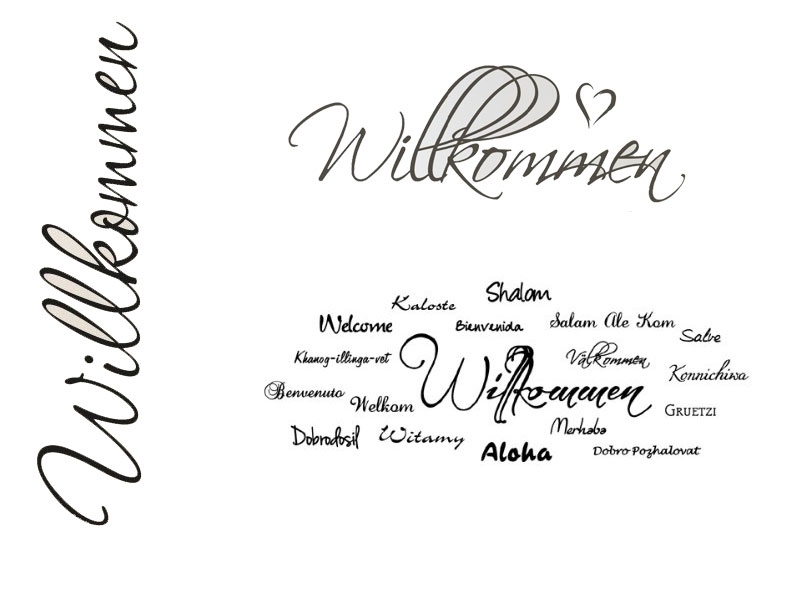 Willkommen
Willkommen
Shalom
Kaloste
Welcome
Bienvenida
Salam Ale Kom
Salve
Khanog-illinga-vet
Välkommen
Konnichiwa
Benvenuto
Welkom
Willkommen
GRUETZI
Dobrodosil
Witamy
Merhaba
Aloha
Dobro Pozhalovat